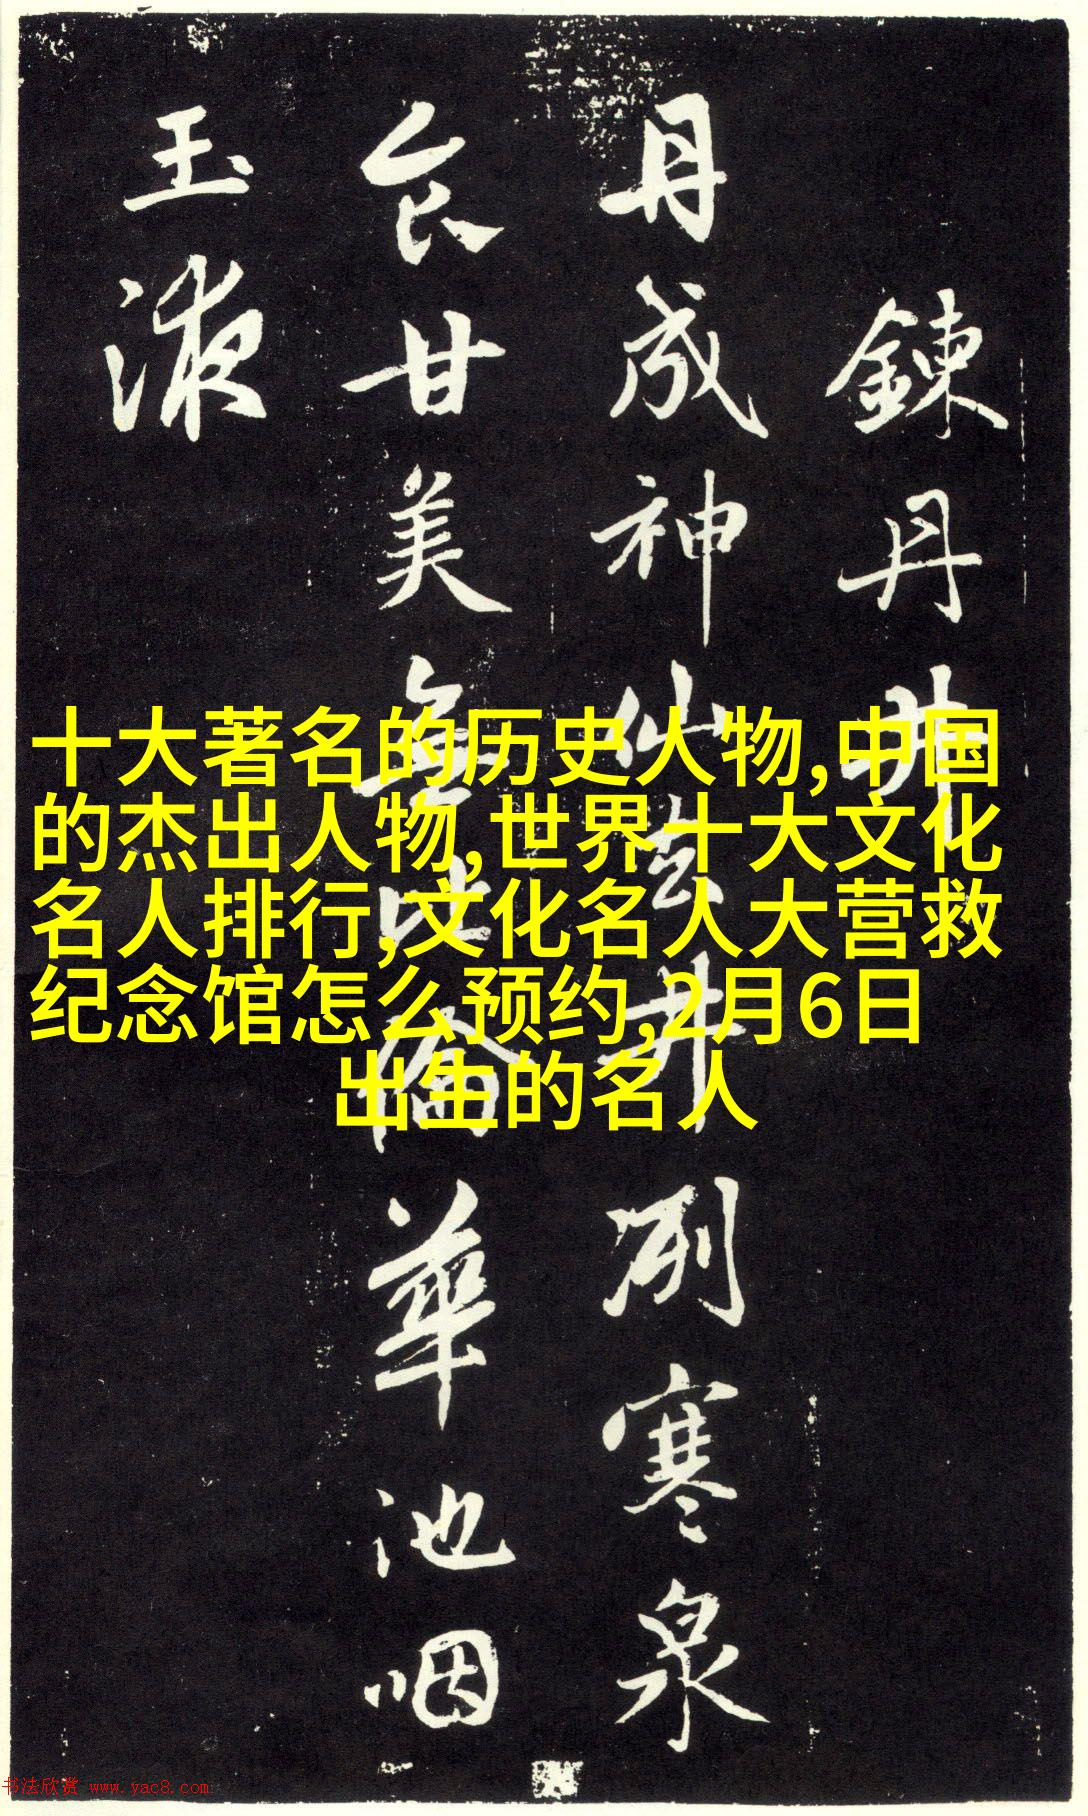 鍊丹井
丹成神仙去井冽寒泉
食甘美無比倫華池咽
玉液
十大著名的历史人物,中国
的杰出人物,世界十大文化
名人排行,文化名人大营救
纪念馆怎么预约,2月6日
出生的名人
书法欣赏 www.yac8.com